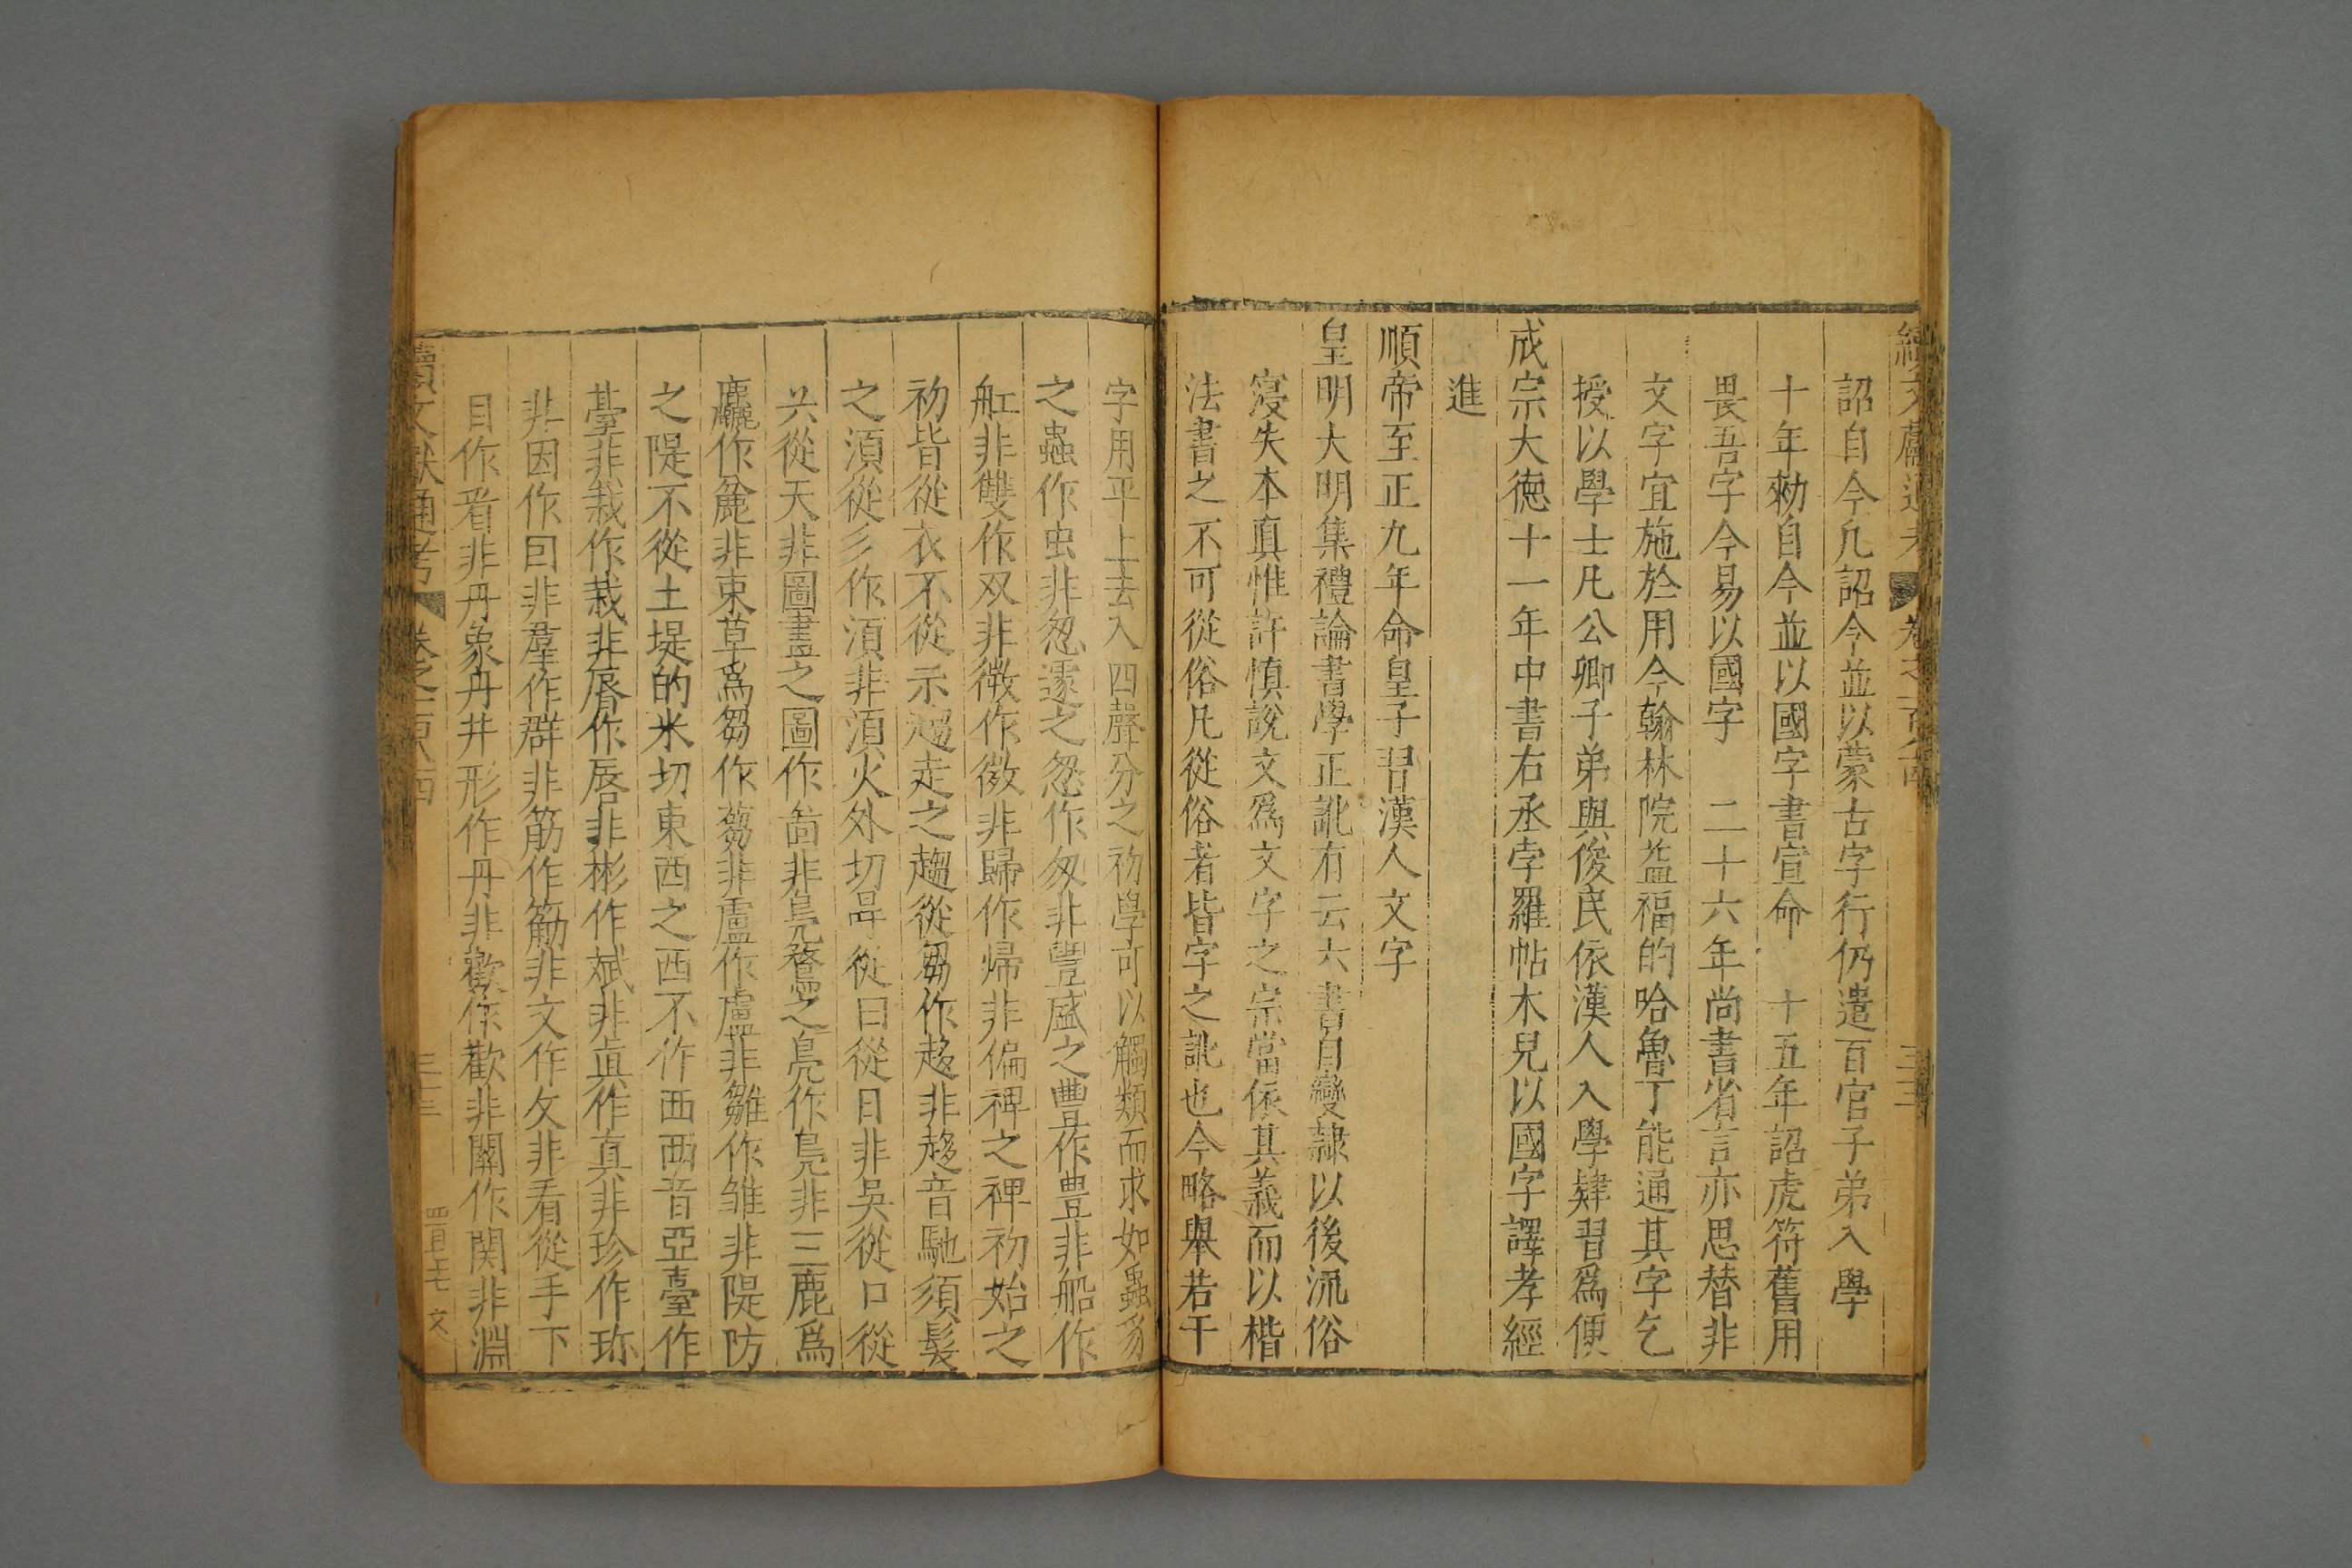 續文獻通考 卷之一百八十四 三十三
詔自今凢詔令並以蒙古字行仍遣百官子弟入學
十年勑自今並以國字書宣命 十五年詔虎符舊用
畏吾字今易以國字 二十六年尚書省言亦思替非
文字宜施於用今翰林院益福的哈魯丁能通其字乞
授以學士凡公卿子弟與俊民依漢人入學肄習爲便
成宗大德十一年中書右丞孛羅帖木兒以國字譯孝經
進
順帝至正九年命皇子習漢人文字
皇明大明集禮論書學正訛有云六書自變隷以後流俗
寖失本眞惟許慎說文爲文字之宗當依其義而以楷
法書之不可從俗凡從俗者皆字之訛也今略舉若干
字用平上去入四聲分之初學可以觸類而求如蟲豸
之蟲作虫非怱遽之怱作匆非豐盛之豐作豊非船作
舡非雙作双非微作㣲非歸作帰非偏裨之裨初始之
初皆從衣不從示趨走之趨從芻作趍非趍音馳須髮
之須從彡作湏非湏火外切㫒從曰從日非吳從口從
夨從天非圖畫之圖作啚非鳧鷖之鳧作鳬非三鹿爲
麤作麄非束草爲芻作蒭非盧作盧非雛作雏非隄防
之隄不從土堤的米切東西之西不作襾襾音亞臺作
䑓非栽作栽非脣作唇非彬作斌非眞作真非珍作珎
非因作囙非羣作群非筋作觔非文作攵非看從手下
目作看非丹象丹井形作丹非歡作歓非關作関非淵
續文獻通考 卷之一百八十四 三十三 四百七十七 文